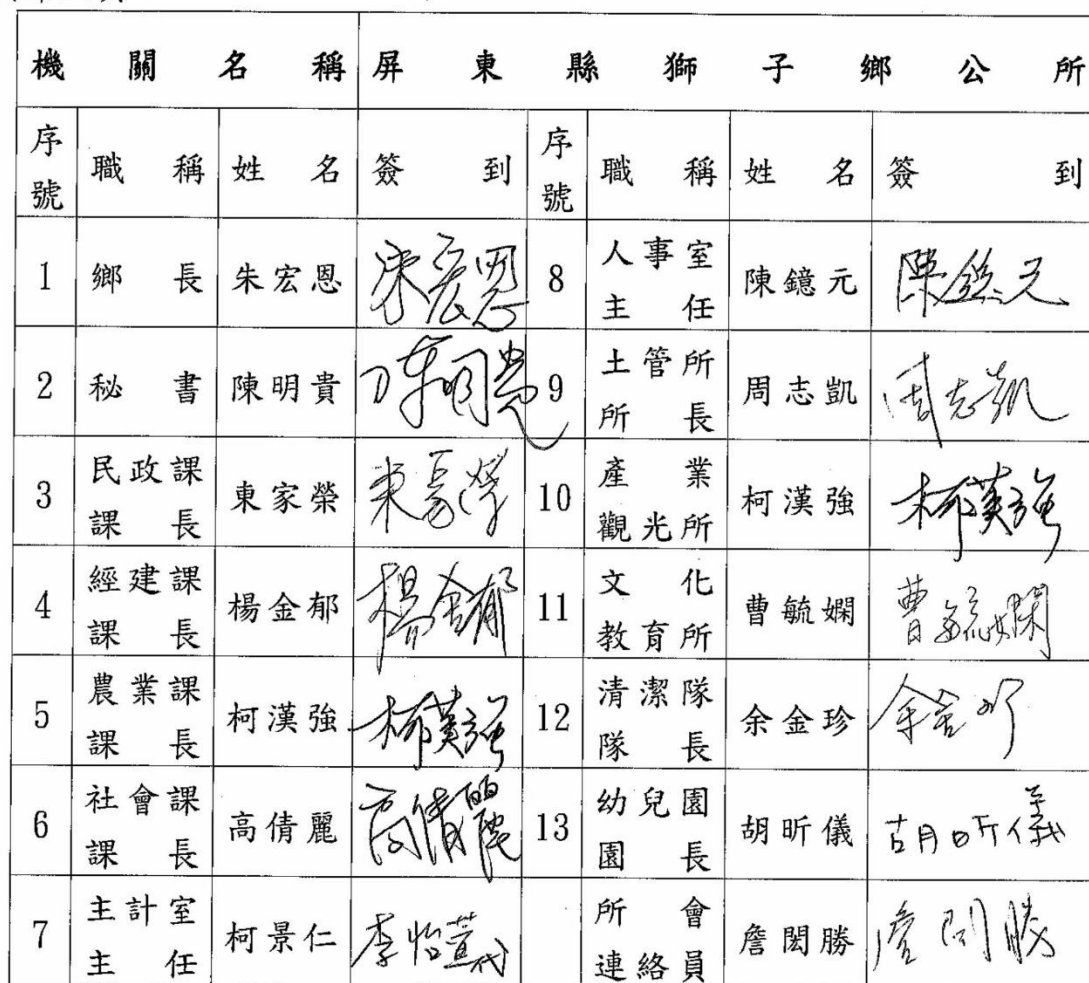 機關名稱 屏東縣獅子鄉公所
序號 職稱 姓名 簽到 序號 職稱 姓名 簽到
1 鄉長 朱宏恩 朱宏恩 8 人事室主任 陳鐿元 陳鐿元
2 秘書 陳明貴 陳明貴 9 土管所所長 周志凱 周志凱
3 民政課課長 東家榮 東家榮 10 產業觀光所 柯漢強 柯漢強
4 經建課課長 楊金郁 楊金郁 11 文化教育所 曹毓嫻 曹毓嫻
5 農業課課長 柯漢強 柯漢強 12 清潔隊隊長 余金珍 余金珍
6 社會課課長 高倩麗 高倩麗 13 幼兒園園長 胡昕儀 胡昕儀
7 主計室主任 柯景仁 李怡萱代 所會連絡員 詹閎勝 詹閎勝